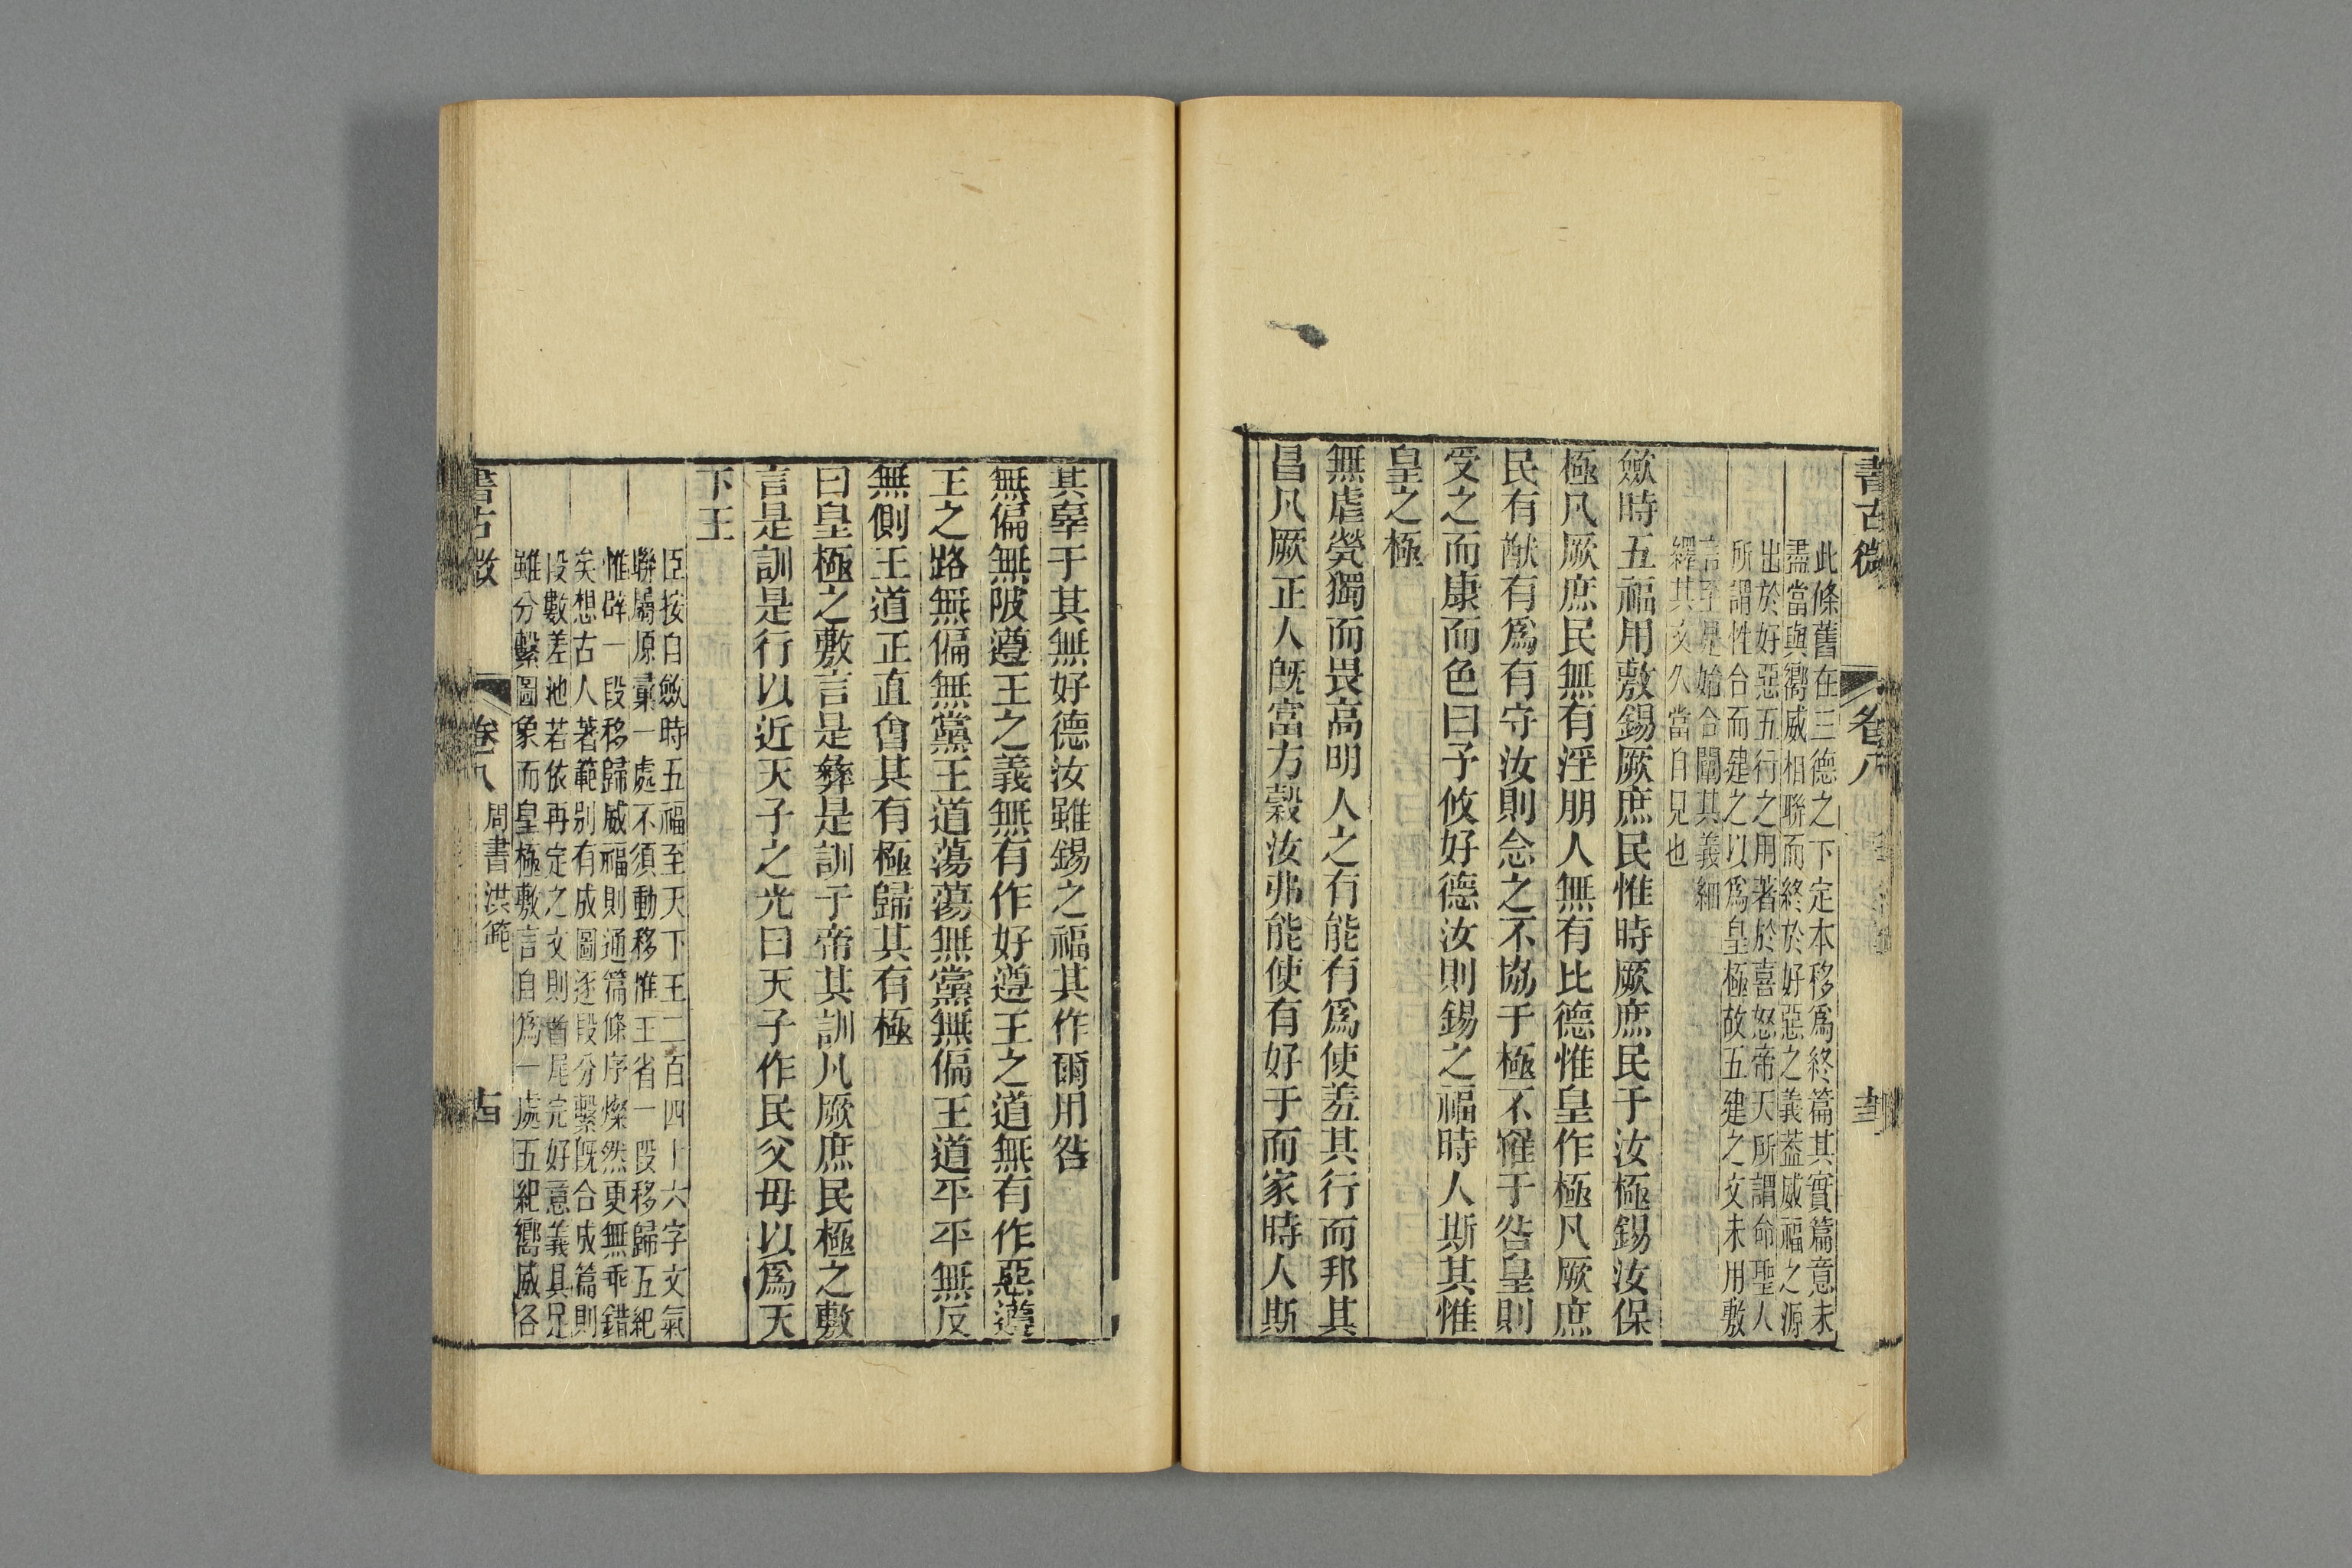 書古微
卷八
此條舊在三德之下定本移爲終篇其實篇意未
盡當與嚮威相聯而終於好惡之義葢威福之源
出於好惡五行之用著於喜怒帝天所謂命聖人
所謂性合而建之以爲皇極故五建之文未用敷
言至是始合闡其義細
繹其文久當自見也
斂時五福用敷錫厥庶民惟時厥庶民于汝極錫汝保
極凡厥庶民無有淫朋人無有比德惟皇作極凡厥庶
民有猷有爲有守汝則念之不協于極不罹于咎皇則
受之而康而色曰予攸好德汝則錫之福時人斯其惟
皇之極
無虐煢獨而畏高明人之有能有爲使羞其行而邦其
昌凡厥正人旣富方穀汝弗能使有好于而家時人斯
其辜于其無好德汝雖錫之福其作爾用咎
無偏無陂遵王之義無有作好遵王之道無有作惡遵
王之路無偏無黨王道蕩蕩無黨無偏王道平平無反
無側王道正直會其有極歸其有極
曰皇極之敷言是彝是訓于帝其訓凡厥庶民極之敷
言是訓是行以近天子之光曰天子作民父毋以爲天
下王
臣按自斂時五福至天下王二百四十六字文氣
聯屬原彙一處不須動移惟王省一段移歸五紀
惟辟一段移歸威福則通篇條序燦然更無乖錯
矣想古人著範别有成圖逐段分繫旣合成篇則
段數差池若依再定之文則首尾完好意義具足
雖分繫圖象而皇極敷言自爲一處五紀嚮威各
書古微
卷八
周書洪範